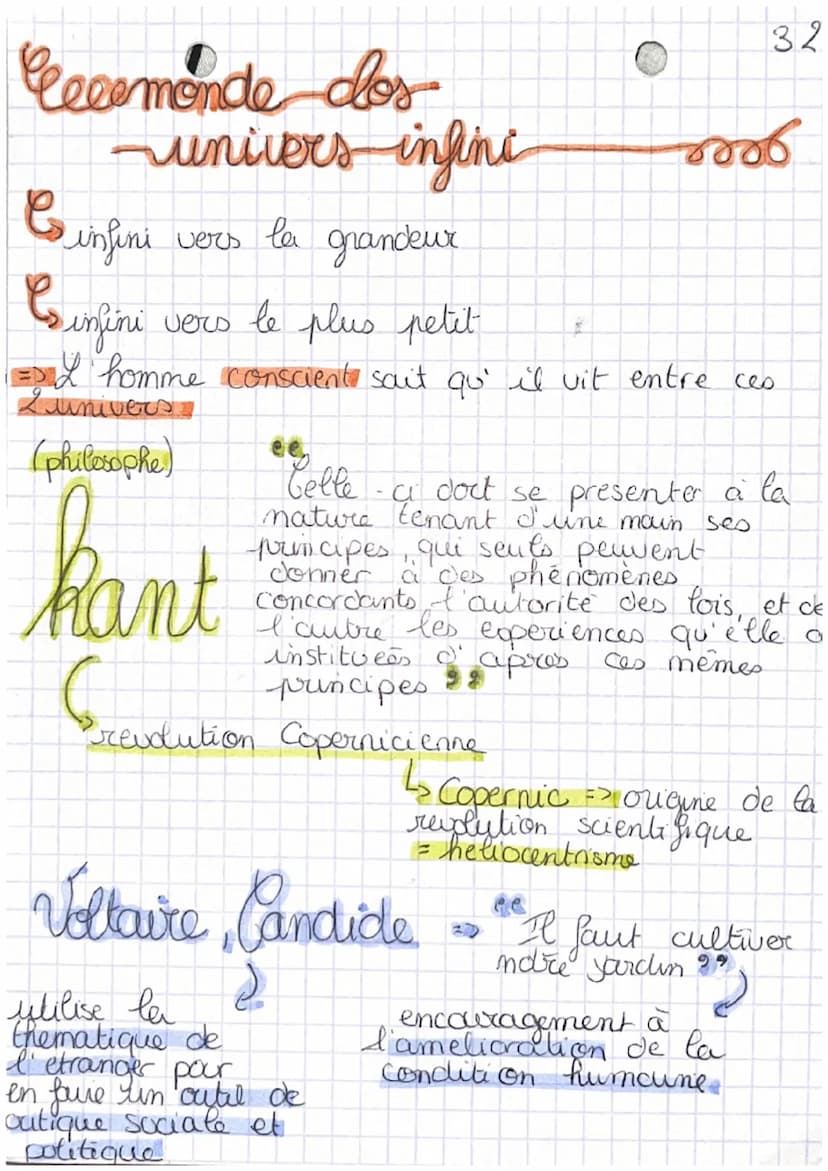 32
monde clos
univers infini
infini vers la grandeur
infini vers le plus petit
=> L'homme conscient sait qu'il vit entre ces
2 univers
(philosophe)
kant
"Celle-ci doit se presenter à la
nature tenant d'une main ses
principes, qui seuls peuvent
donner à des phénomènes
concordants l'autorité des lois, et de
l'autre les experiences qu'elle a
instituées d'apres ces mêmes
principes"
revolution Copernicienne
Copernic => origine de la
revolution scientifique
= heliocentrisme
Voltaire, Candide => "Il faut cultiver
notre jardin"
utilise la
thematique de
l'etranger pour
en faire un outil de
critique sociale et
politique
encouragement à
l'amelioration de la
condition humaine.